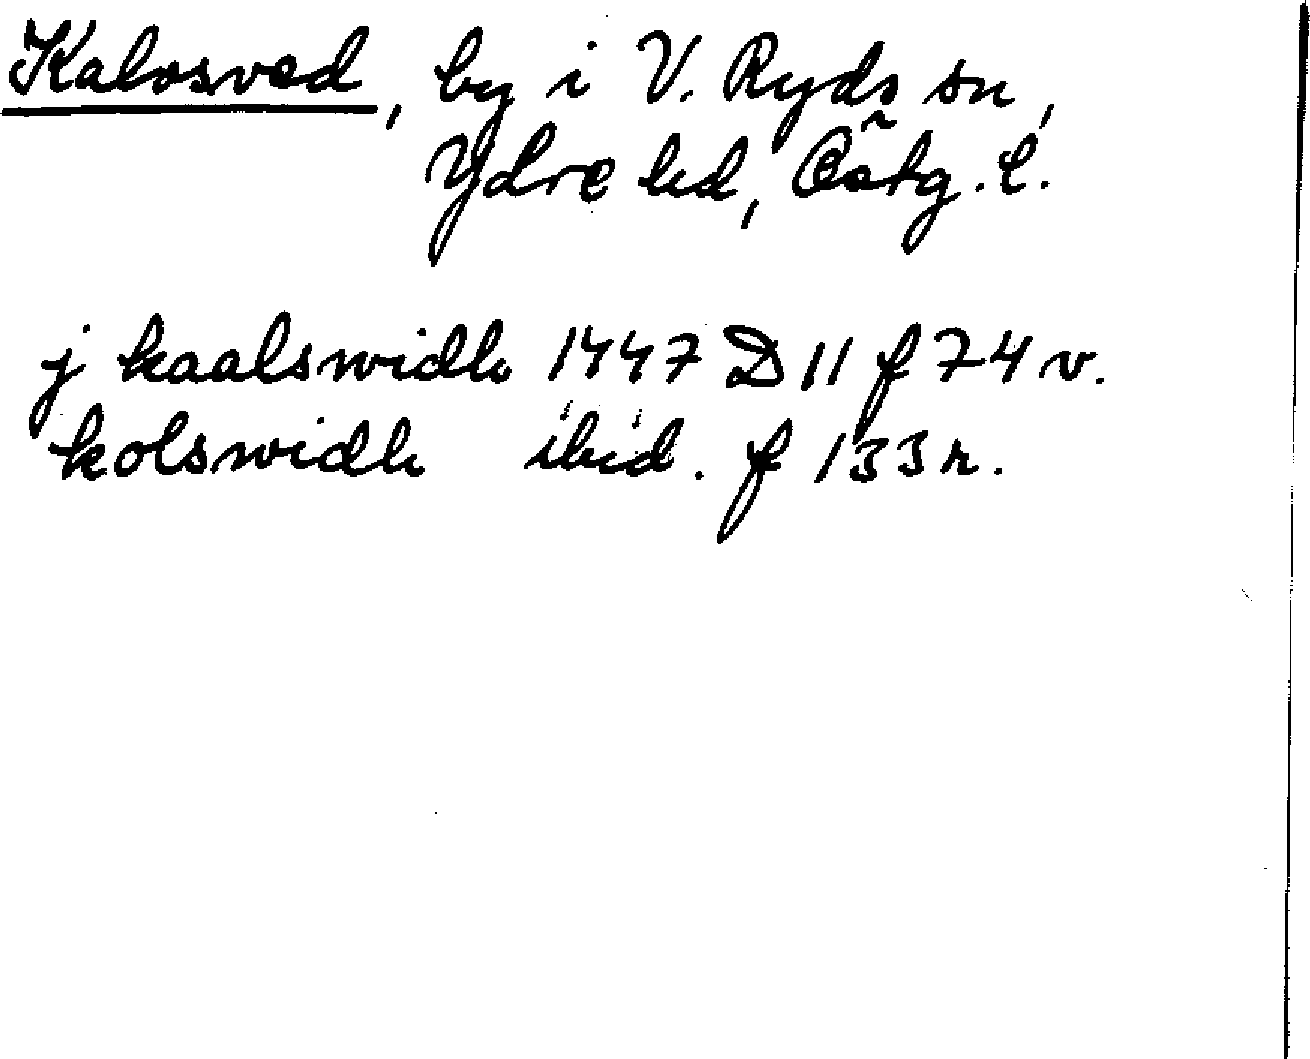 Kalvsved, by i V. Ryds sn,
Ydre hd, Östg. l.
j kaalswidh 1447 D 11 f 74 v.
kolswidh ibid. f 133 r.